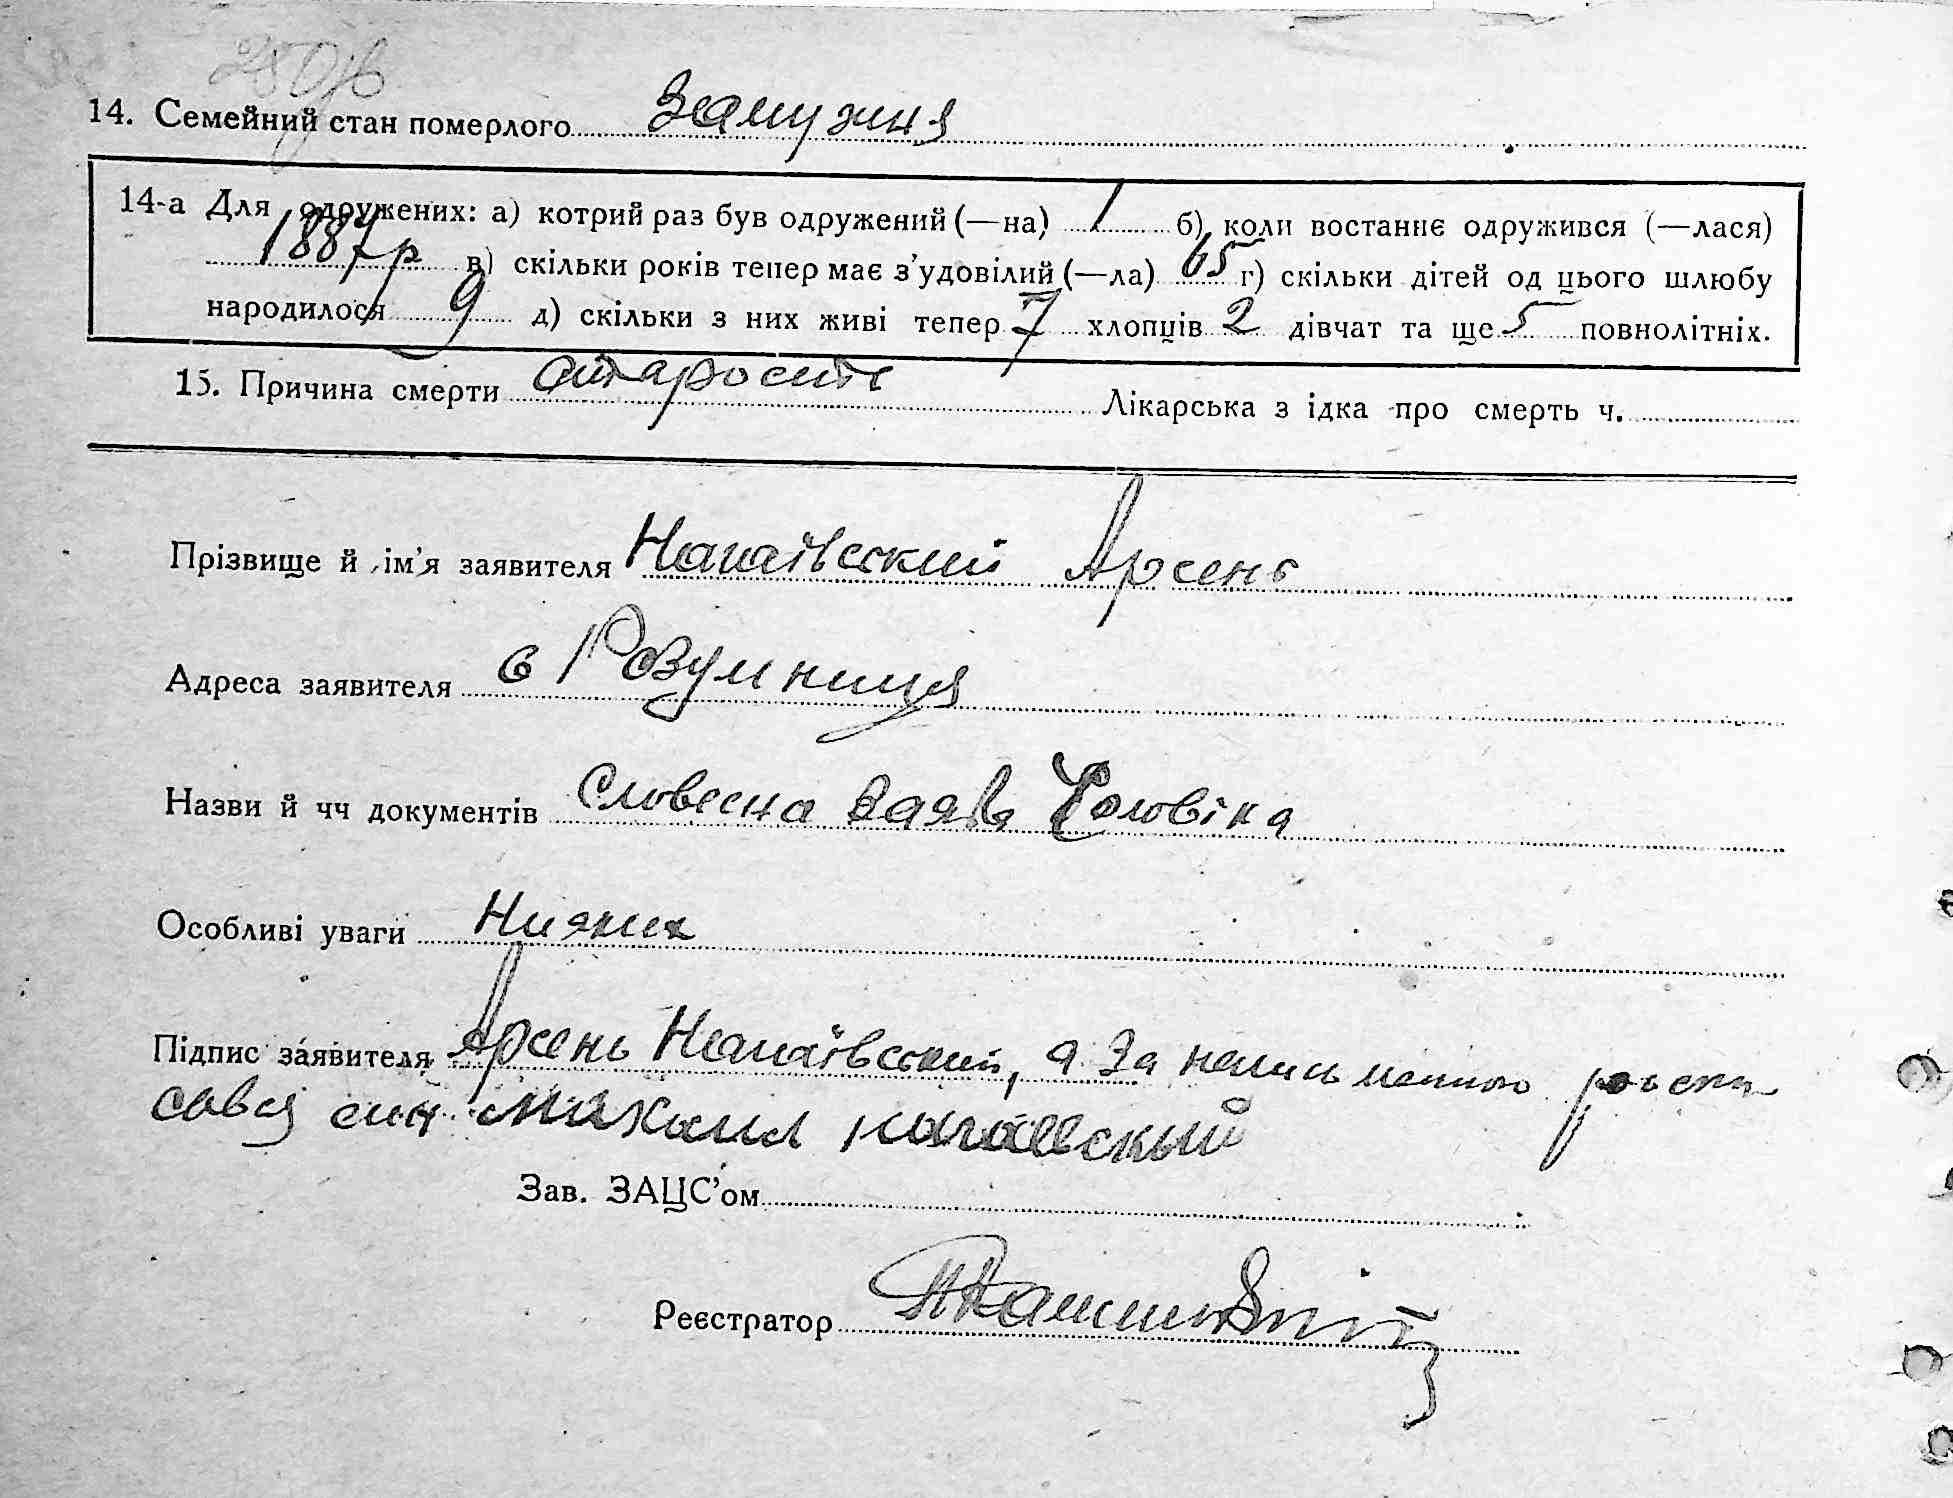 14. Семейний стан померлого Замужня
14-а Для одружених: а) котрий раз був одружений (—на) 1 б) коли востаннє одружився (—лася)
1887 р в) скільки років тепер має з’удовілий (—ла) 65 г) скільки дітей од цього шлюбу
народилося 9 д) скільки з них живі тепер 7 хлопців 2 дівчат та ще 5 повнолітніх.
15. Причина смерти старость Лікарська з ідка про смерть ч.
Прізвище й ім’я заявителя Нагаївский Арсень
Адреса заявителя с Розумниця
Назви й чч документів Словесна заява Чоловіка
Особливі уваги Нияких
Підпис заявителя Арсень Нагаївский, а За неписьменного росспи
савсь син Михаил Нагаевский
Зав. ЗАЦС’ом
Реєстратор